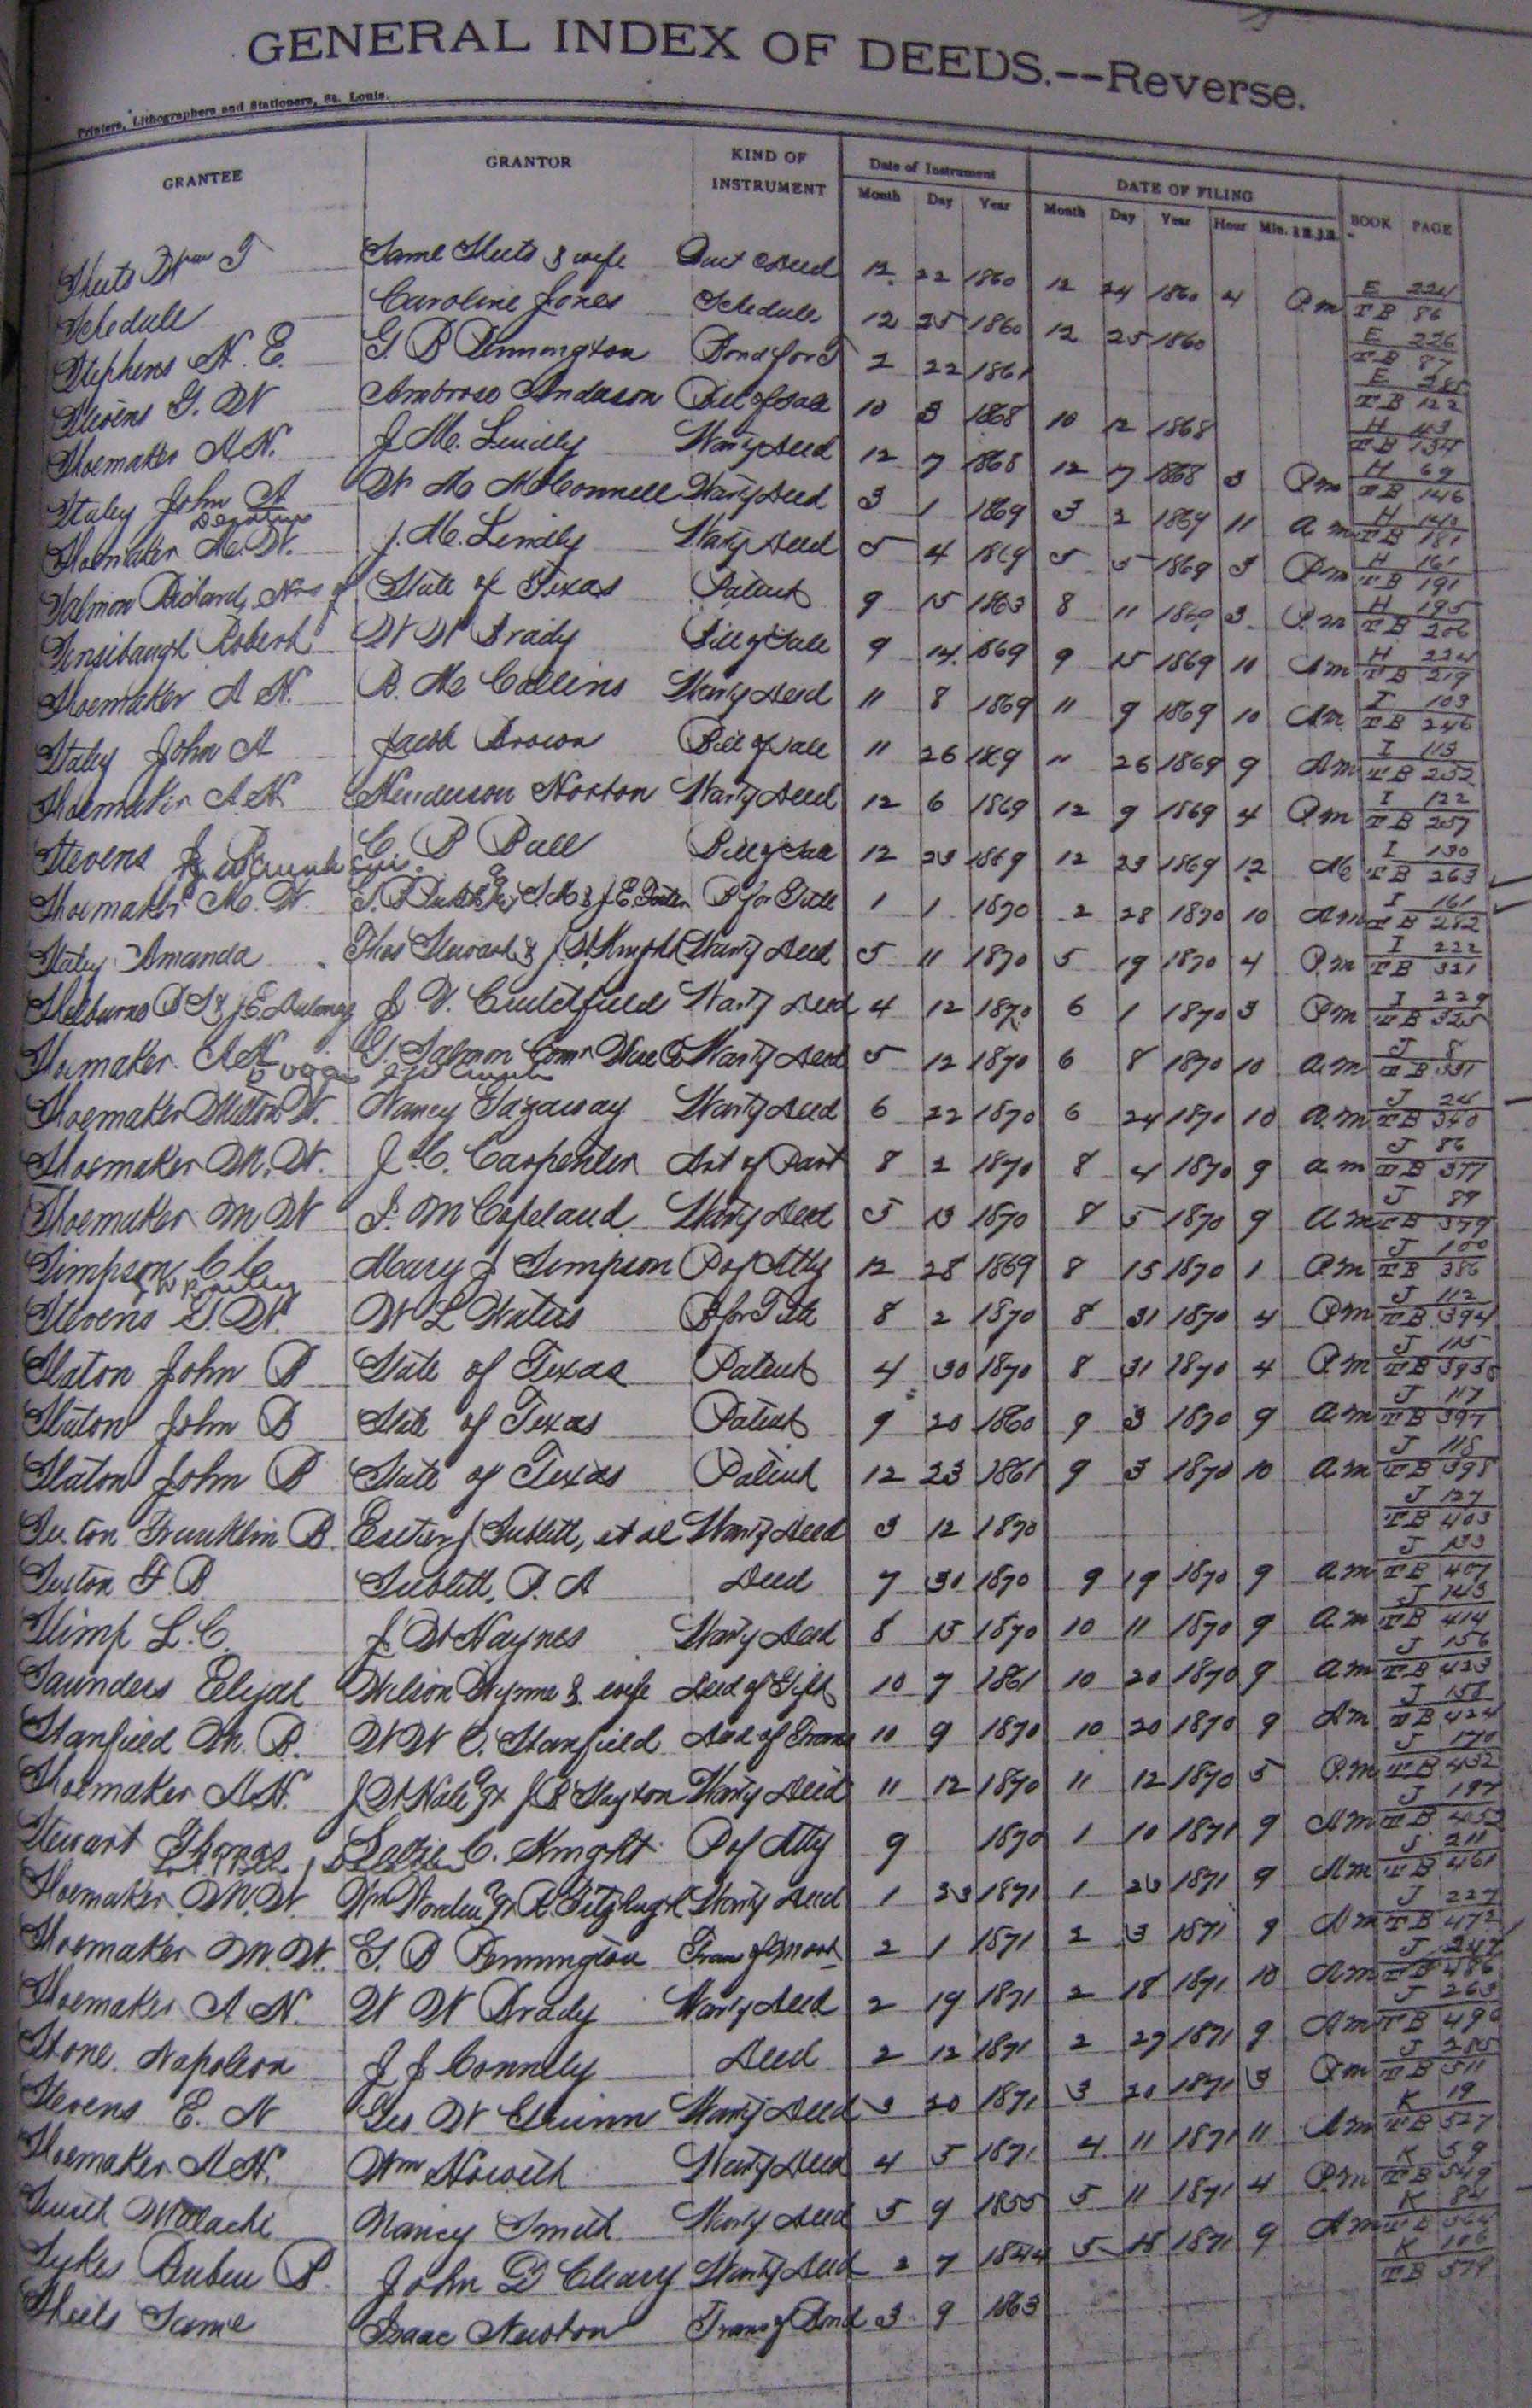 GENERAL INDEX OF DEEDS.--Reverse.
Printers, Lithographers and Stationers, St. Louis.
GRANTEE GRANTOR KIND OF INSTRUMENT Date of Instrument DATE OF FILING BOOK PAGE
Month Day Year Month Day Year Hour Min.
Sheets Wm T Same Sheets & wife Quit Deed 12 22 1860 12 24 1860 4 P.m E 224 TB 86
Schedule Caroline Jones Schedule 12 25 1860 12 25 1860 E 226 TB 87
Stephens N. E. G B Pennington Bond for T 2 22 1861 E 285 TB 122
Stevens G. W Ambrose Anderson Bill of Sale 10 3 1868 10 12 1868 H 43 TB 134
Shoemaker A N. J. M. Lindly Warty Deed 12 7 1868 12 7 1868 3 P.m H 69 TB 146
Staley John A W M McConnell Warty Deed 3 1 1869 3 2 1869 11 a m H TB 181
Shoemaker M. W. J. M. Lindly Warty Deed 5 4 1869 5 5 1869 3 P.m H 161 TB 191
Salmon Richard, Hrs of State of Texas Patent 9 15 1863 8 11 1869 3 P.m H 195 TB 206
Sensibaugh Robert W W Brady Bill of Sale 9 14 1869 9 15 1869 10 Am H 224 TB 219
Shoemaker A N. B. M Collins Warty Deed 11 8 1869 11 9 1869 10 Am I 103 TB 246
Staley John A Jacob Brown Bill of Sale 11 26 1869 " 26 1869 9 Am I 113 TB 252
Shoemaker A N Henderson Norton Warty Deed 12 6 1869 12 9 1869 4 P.m I 122 TB 257
Stevens C B Ball Bill of Sale 12 23 1869 12 23 1869 12 M I 130 TB 263
Shoemaker M. W. B for Title 1 1 1870 2 28 1870 10 Am I 161 TB 282
Staley Amanda Thos Stewart & J W Knight Warty Deed 5 11 1870 5 19 1870 4 P.m I 222 TB 321
Shelburne J. V. Cruitchfield Warty Deed 4 12 1870 6 1 1870 3 P.m I 229 TB 325
Shoemaker A N G. Salmon Comr Warty Deed 5 12 1870 6 8 1870 10 a.m J 8 TB 331
Shoemaker Milton W. Nancy Gazaway Warty Deed 6 22 1870 6 24 1870 10 a.m J 24 TB 340
Shoemaker M. W. J. C. Carpenter Art of Part 8 2 1870 8 4 1870 9 a m J 86 TB 377
Shoemaker M W J. M Copeland Warty Deed 5 13 1870 8 5 1870 9 a m J 89 TB 379
Simpson C C Mary J Simpson P of Atty 12 28 1869 8 15 1870 1 P.m J 100 TB 386
Stevens G. W. W L Waters B for Title 8 2 1870 8 31 1870 4 P.m J 112 TB 394
Slaton John B State of Texas Patent 4 30 1870 8 31 1870 4 P.m J 115 TB 395
Slaton John B State of Texas Patent 9 20 1860 9 3 1870 9 a.m J 117 TB 397
Slaton John B State of Texas Patent 12 23 1861 9 3 1870 10 a.m J 118 TB 398
Sexton Franklin B Sublett, et al Warty Deed 3 12 1870 J 127 TB 403
Sexton F. B Sublett, P. A Deed 7 30 1870 9 19 1870 9 a.m J 133 TB 407
Slimp L. C. J. W Haynes Warty Deed 8 15 1870 10 11 1870 9 a.m J 143 TB 414
Saunders Elijah Wilson Wynne & wife Deed of Gift 10 7 1861 10 20 1870 9 a m J 156 TB 423
Stanfield M. B. W W C. Stanfield Deed of Trans 10 9 1870 10 20 1870 9 Am J 158 TB 424
Shoemaker A N. J B Slayton Warty Deed 11 12 1870 11 12 1870 5 P.m J 170 TB 432
Stewart Thomas C. Knight P of Atty 9 1870 1 10 1871 9 Am J 197 TB 452
Shoemaker M. W. R. Fitzhugh Warty Deed 1 23 1871 1 23 1871 9 Am J 211 TB 461
Shoemaker M. W. G. B Pennington Tran of Mort 2 1 1871 2 3 1871 9 Am J 227 TB 472
Shoemaker A N. W W Brady Warty Deed 2 19 1871 2 18 1871 10 Am J 247 TB 486
Stone Napoleon J J Connely Deed 2 12 1871 2 27 1871 9 Am J 263 TB 496
Stevens E. N Geo W Warty Deed 3 20 1871 3 20 1871 3 P.m J 285 TB 511
Shoemaker A N. Wm Howeth Warty Deed 4 5 1871 4 11 1871 11 Am K 19 TB 527
Smith Malachi Nancy Smith Warty Deed 5 9 1855 5 11 1871 4 P.m K 59 TB 549
Sykes B. John D Cleary Warty Deed 2 7 1844 5 18 1871 9 Am K 84 TB 564
Sheets Same Isaac Newton Trans of Bond 3 9 1863 K 106 TB 579